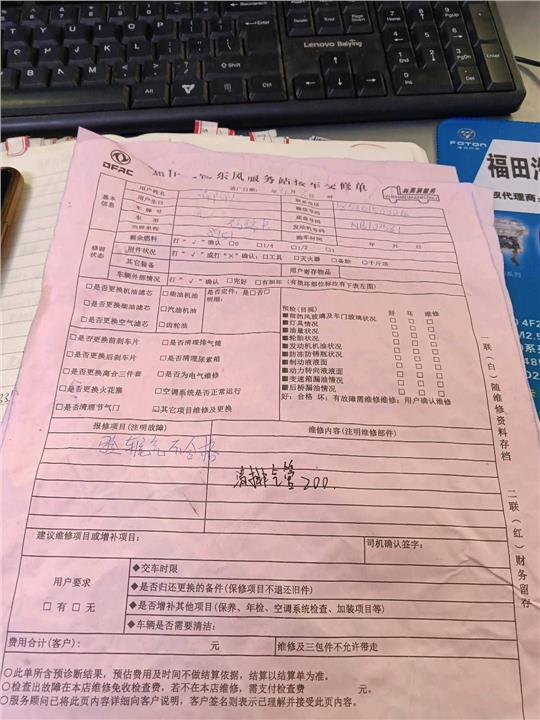 Lenovo Baiying
DFAC
东风服务站接车交修单
FOTON
福田汽
权代理商
基本信息
用户姓名
进厂日期: 年
联系电话
用户生日
微信号码
车牌号
底盘号码
车型
发动机号码
当前里程
购车时间 年 月 日
修前状态
剩余燃料 打"√"确认 □0 □1/4 □1/2 □1
附件状况 打"√"或打"×"确认:□工具 □灭火器 □备胎 □千斤顶
其它装备
用户寄存物品
车辆外部情况 打"√"确认 □完好 □有损坏(有损坏部位标注有下表左图)
□是否更换机油滤芯 □柴油机油 是否定件:是□否□
□是否更换柴油滤芯 □汽油机油 明细:
□是否更换空气滤芯 □齿轮油
□是否更换前刹车片 □是否清理排气管
□是否更换后刹车片 □是否清理尿素箱
□是否更换离合三件套 □是否为电气维修
□是否更换火花塞 □空调系统是否正常运行
□是否清理节气门 □其它项目维修及更换
预检(目视) 好 坏 维修
■前挡风玻璃及车门玻璃状况 □ □ □
■灯具情况 □ □ □
■油量状况 □ □ □
■轮胎状况 □ □ □
■发动机机油状况 □ □ □
■防冻防锈瓶状况 □ □ □
■制动液液面 □ □ □
■动力转向液液面 □ □ □
■变速箱漏油情况 □ □ □
■后桥漏油情况 □ □ □
好:合格 坏:有故障需维修维修:用户确认维修
报修项目(注明故障)
维修内容(注明维修部件)
尾气不合格
清排气管200.
建议维修项目或增补项目:
司机确认签字:
用户要求
□有 □无
◆交车时限
◆是否归还更换的备件(保修项目不退还旧件)
◆是否增补其他项目(保养、年检、空调系统检查、加装项目等)
◆车辆是否需要清洁:
费用合计(客户): 元
维修及三包件不允许带走
○此单所含预诊断结果,预估费用及时间不做结算依据,结算以结算单为准。
○检查出故障在本店维修免收检查费,若不在本店维修,需支付检查费 元。
○服务顾问已将此页内容详细向客户说明,客户签名则表示已理解并接受此页内容。
一联(白)随维修资料存档
二联(红)财务留存